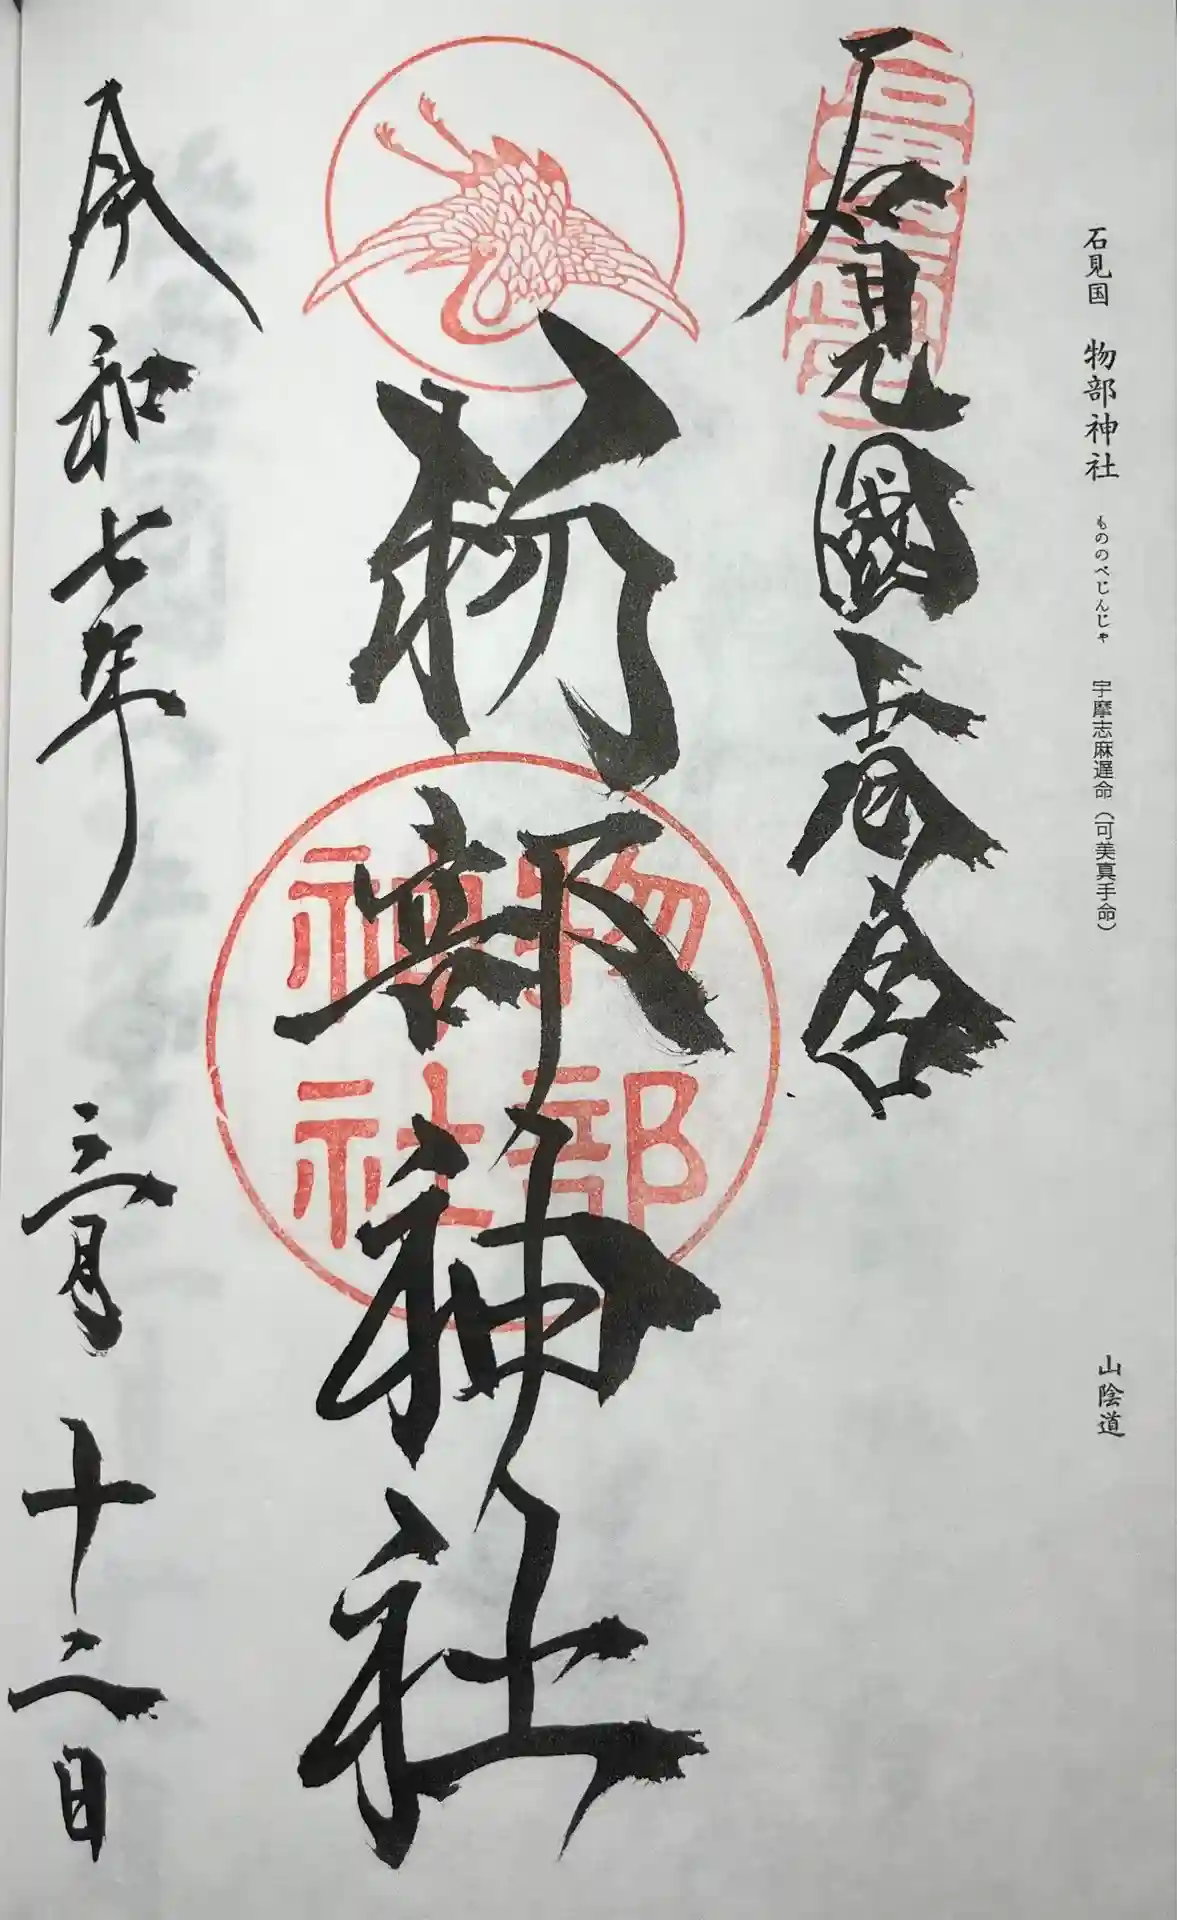 石見国　物部神社　もののべじんじゃ　宇摩志麻遅命（可美真手命）　山陰道
石見國壹宮
物部神社
物部
神社
令和七年　三月　十二日